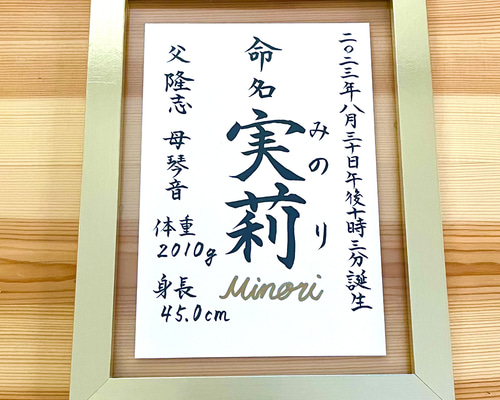 二〇二三年八月三十日午後十時三分誕生
命名
実莉
みのり
Minori
父 隆志 母 琴音
体重
2010g
身長
45.0cm